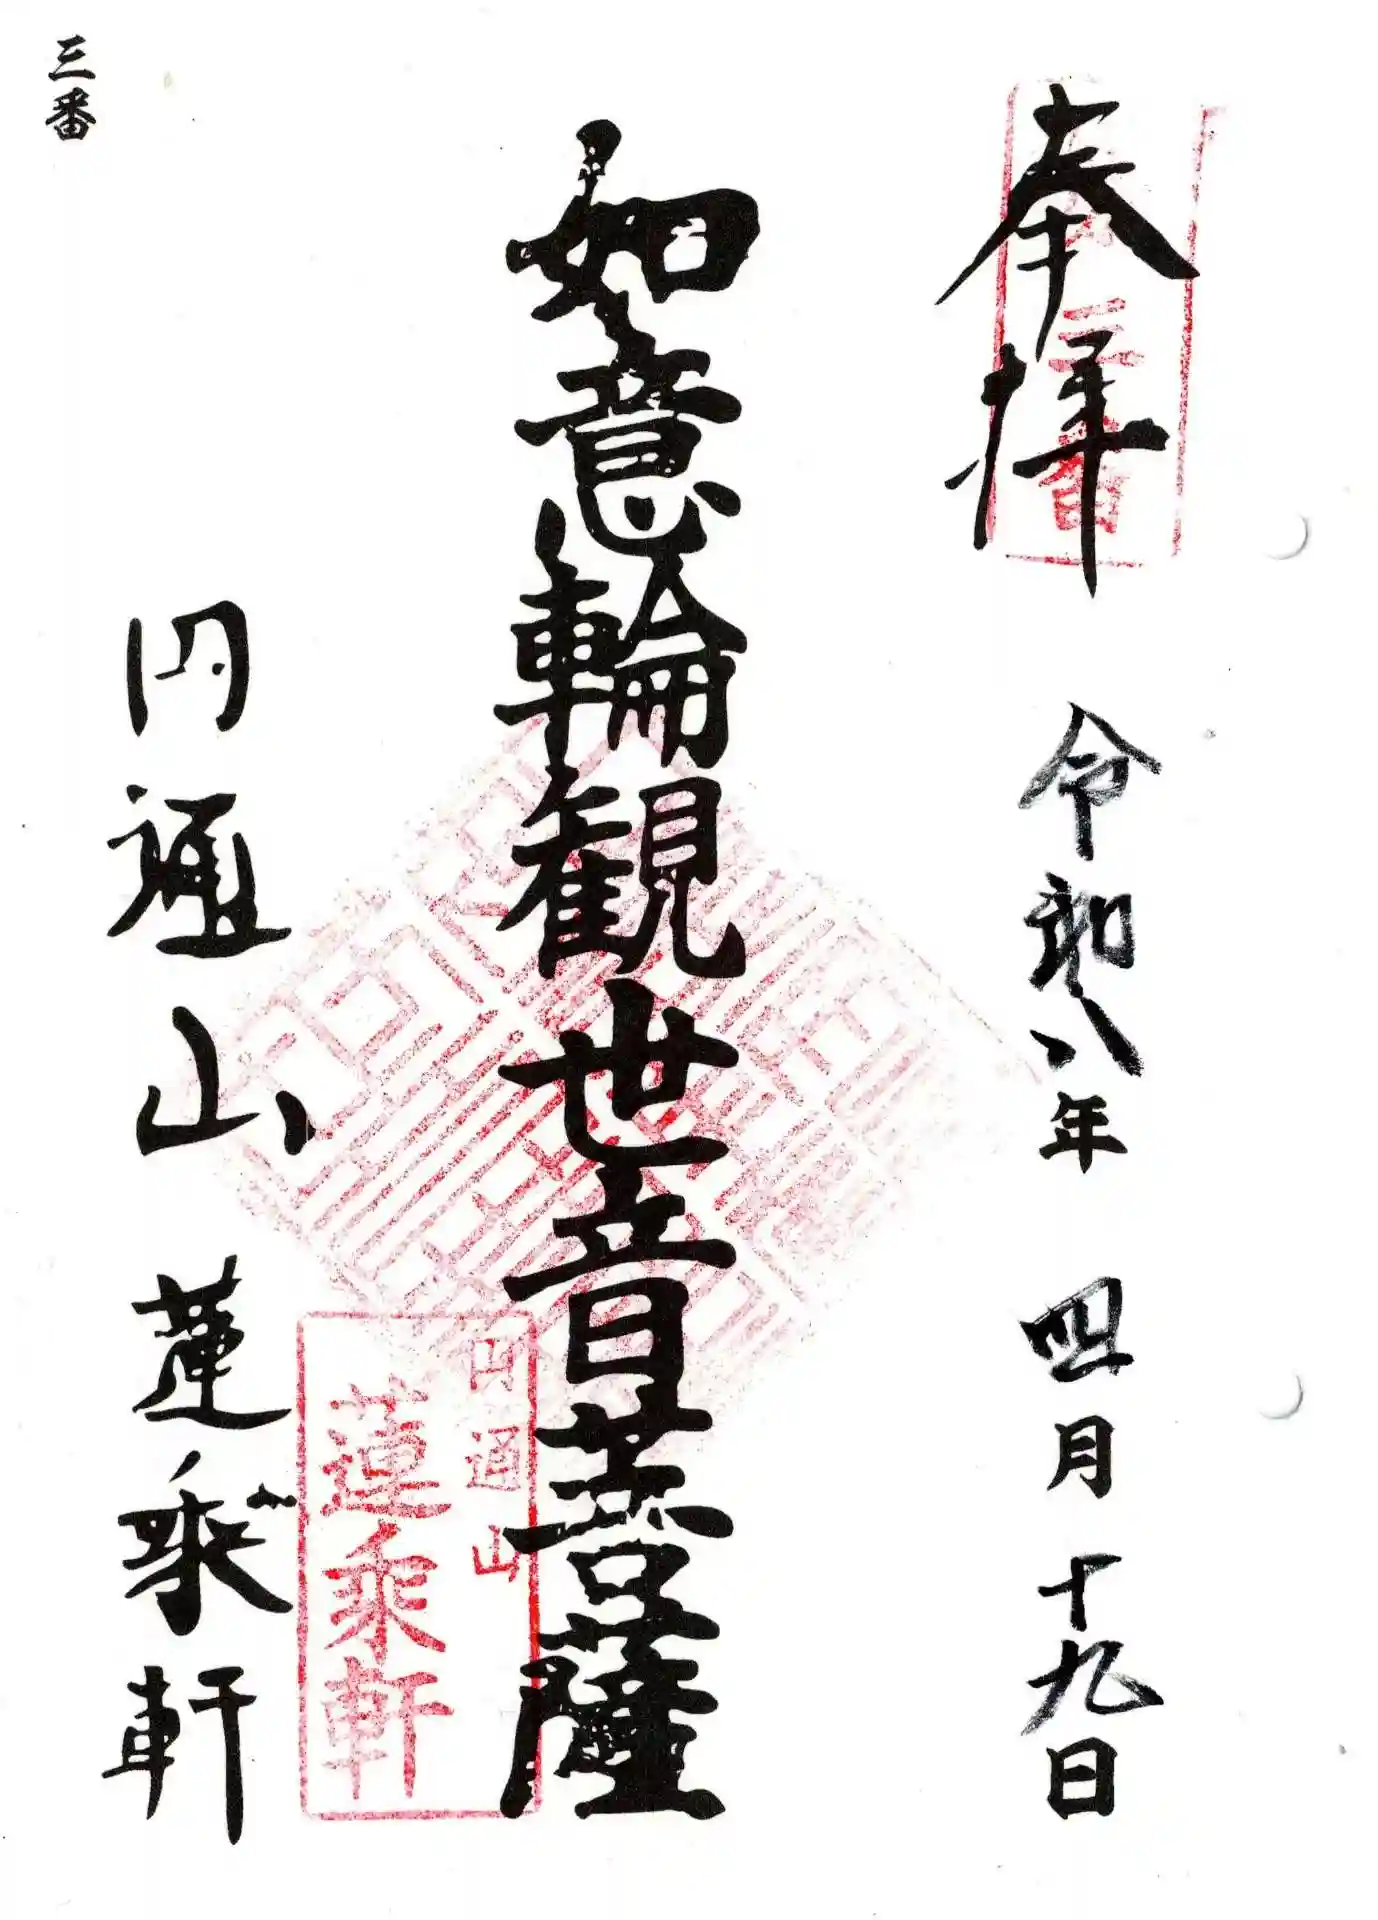 奉拝
令和八年 四月十九日
第三番
如意輪観世音菩薩
円通山
蓮乗軒
円通山 蓮乗軒
三番